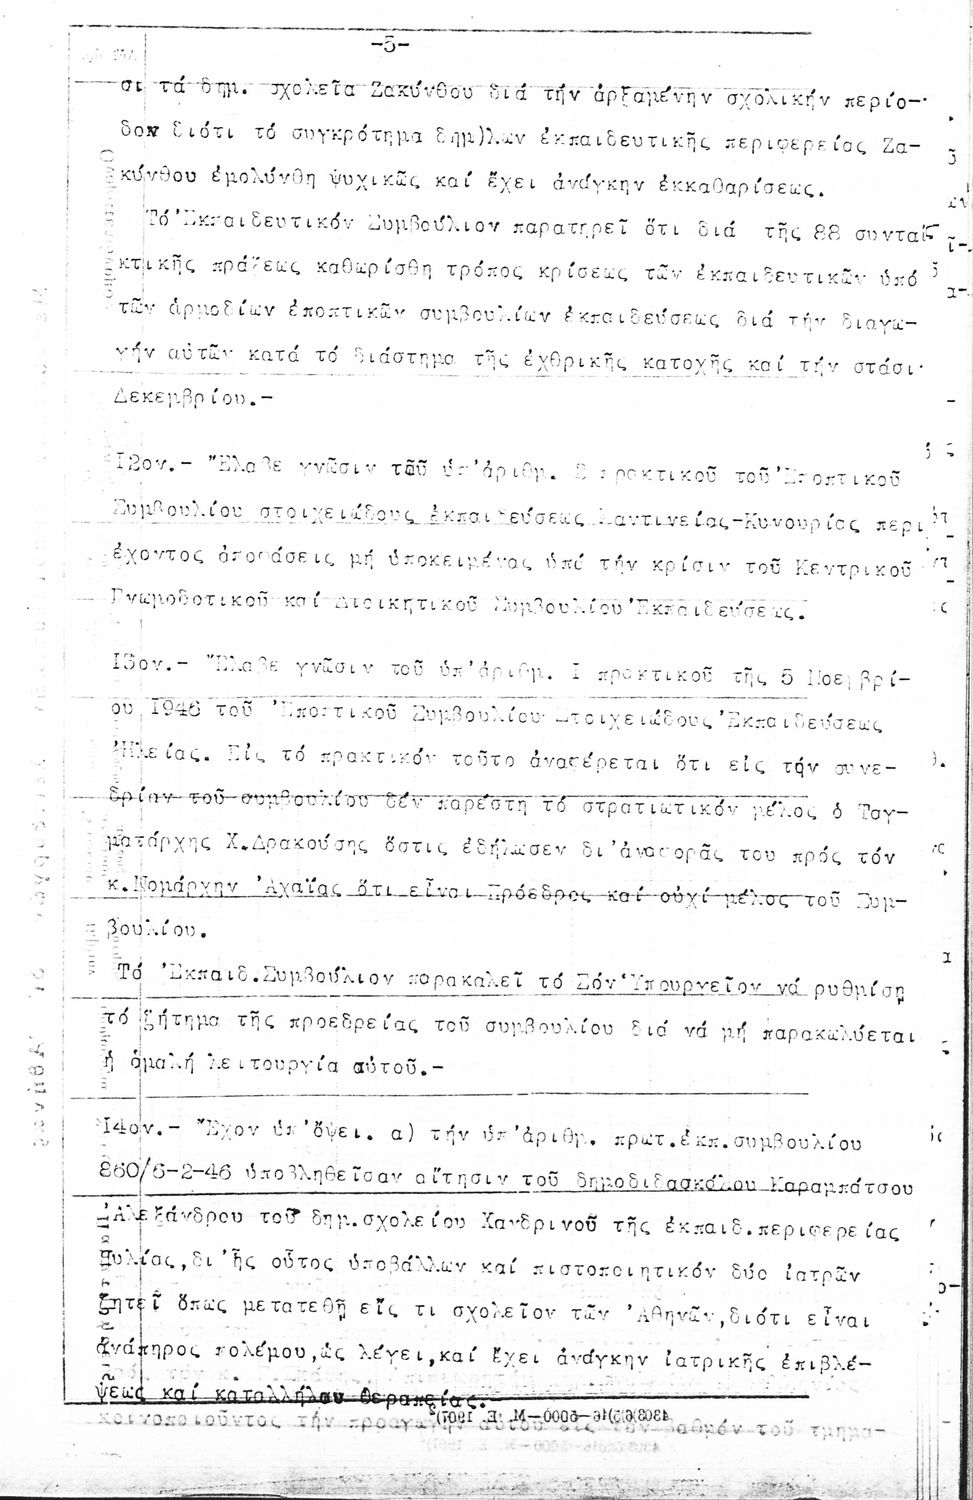 -5-
σι τά δημ. σχολεῖα Ζακύνθου διά τήν ἀρξαμένην σχολικήν περίο-
δον διότι τό συγκρότημα δημ)λων ἐκπαιδευτικῆς περιφερείας Ζα-
κύνθου ἐμολύνθη ψυχικῶς καί ἔχει ἀνάγκην ἐκκαθαρίσεως.
Τό Ἐκπαιδευτικόν Συμβούλιον παρατηρεῖ ὅτι διά τῆς 88 συντα
κτικῆς πράξεως καθωρίσθη τρόπος κρίσεως τῶν ἐκπαιδευτικῶν ὑπό
τῶν ἁρμοδίων ἐποπτικῶν συμβουλίων ἐκπαιδεύσεως διά τήν διαγω-
γήν αὐτῶν κατά τό διάστημα τῆς ἐχθρικῆς κατοχῆς καί τήν στάσι
Δεκεμβρίου.-
12ον.- Ἔλαβε γνῶσιν τοῦ ὑπ' ἀριθμ. 2 πρακτικοῦ τοῦ Ἐποπτικοῦ
Συμβουλίου στοιχειώδους ἐκπαιδεύσεως Μαντινείας-Κυνουρίας περι
έχοντος ἀποφάσεις μή ὑποκειμένας ὑπό τήν κρίσιν τοῦ Κεντρικοῦ
Γνωμοδοτικοῦ καί Διοικητικοῦ Συμβουλίου Ἐκπαιδεύσεως.
13ον.- Ἔλαβε γνῶσιν τοῦ ὑπ' ἀριθμ. Ι πρακτικοῦ τῆς 5 Νοεμβρί-
ου 1946 τοῦ Ἐποπτικοῦ Συμβουλίου Στοιχειώδους Ἐκπαιδεύσεως
Ἠλείας. Εἰς τό πρακτικόν τοῦτο ἀναφέρεται ὅτι εἰς τήν συνε-
δρίαν τοῦ συμβουλίου δέν παρέστη τό στρατιωτικόν μέλος ὁ Ταγ-
ματάρχης Χ.Δρακούσης ὅστις ἐδήλωσεν δι' ἀναφορᾶς του πρός τόν
κ.Νομάρχην Ἀχαΐας ὅτι εἶναι Πρόεδρος καί οὐχί μέλος τοῦ Συμ-
βουλίου.
Τό Ἐκπαιδ.Συμβούλιον παρακαλεῖ τό Σόν Ὑπουργεῖον νά ρυθμίσῃ
τό ζήτημα τῆς προεδρείας τοῦ συμβουλίου διά νά μή παρακωλύεται
ἡ ὁμαλή λειτουργία αὐτοῦ.-
14ον.- Ἔχον ὑπ' ὄψει. α) τήν ὑπ' ἀριθμ. πρωτ.ἐκπ.συμβουλίου
860/6-2-46 ὑποβληθεῖσαν αἴτησιν τοῦ δημοδιδασκάλου Καραμπάτσου
Ἀλεξάνδρου τοῦ δημ.σχολείου Χανδρινοῦ τῆς ἐκπαιδ.περιφερείας
Πυλίας,δι' ἧς οὗτος ὑποβάλλων καί πιστοποιητικόν δύο ἰατρῶν
ζητεῖ ὅπως μετατεθῇ εἴς τι σχολεῖον τῶν Ἀθηνῶν,διότι εἶναι
ἀνάπηρος πολέμου,ὡς λέγει,καί ἔχει ἀνάγκην ἰατρικῆς ἐπιβλέ-
ψεως καί καταλλήλου θεραπείας.
κοινοποιοῦντος τήν προαγωγήν αὐτοῦ εἰς τόν βαθμόν τοῦ τμημα-